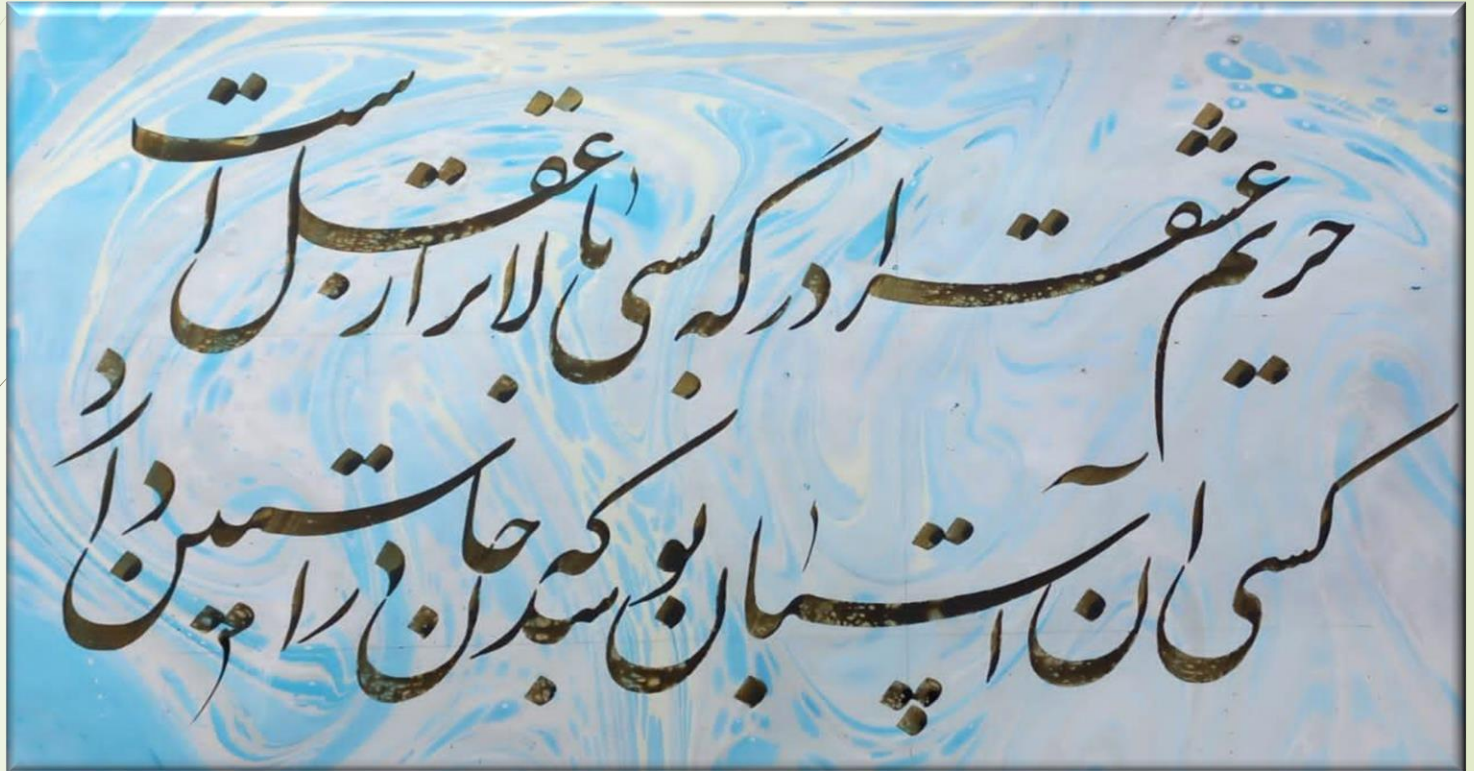 حریم عشق را درگه بسی بالاتر از عقل است
کسی آن آستان بوسد که جان در آستین دارد